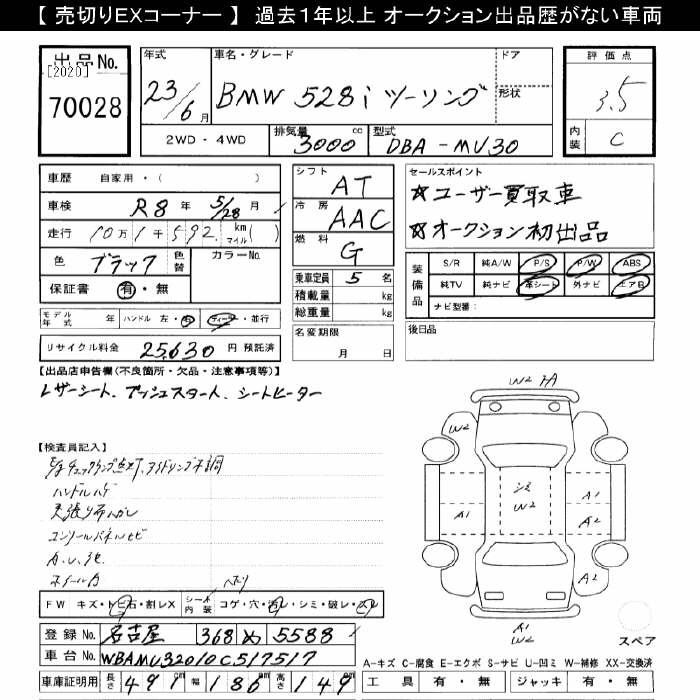 【 売切りEXコーナー 】 過去1年以上 オークション出品歴がない車両
出品No.
[2020]
70028
年式
23/6月
車名・グレード
BMW 528i ツーリング
ドア
形状
評価点
3.5
内装
C
2WD・4WD
排気量
3000 cc
型式
DBA-MU30
車歴 自家用・( )
車検 R8年 5/28月
走行 10万1千592 km マイル ( )
色 ブラック 色替
カラーNo.
保証書 有・無
シフト AT
冷房 AAC
燃料 G
乗車定員 5 名
積載量 kg
総重量 kg
セールスポイント
☆ユーザー買取車
☆オークション初出品
装備品
S/R 純A/W P/S P/W ABS
純TV 純ナビ 革シート 外ナビ エアB
ナビ型番:
モデル年式 年 ハンドル 左・右 ディーラー・並行
名変期限
月 日
後日品
リサイクル料金 25,630 円 預託済
【出品店申告欄(不良箇所・欠品・注意事項等)】
レザーシート、プッシュスタート、シートヒーター
【検査員記入】
ハンドルハゲ
天張り布ハガレ
コンソールパネルヒビ
A.U.他
ホイールA
W2
W2
シミ
W2
A1
A1
A2
A2
A1
W2
スペア
FW キズ・トビ石・割レX
シート内装 コゲ・穴・汚レ・シミ・破レ・スレ
登録No. 名古屋 368 め 5588
車台No. WBAMU32010C517517
A-キズ C-腐食 E-エクボ S-サビ U-凹ミ W-補修 XX-交換済
車庫証明用 長さ 491 幅 186 高さ 149
工具 有・無 ジャッキ 有・無